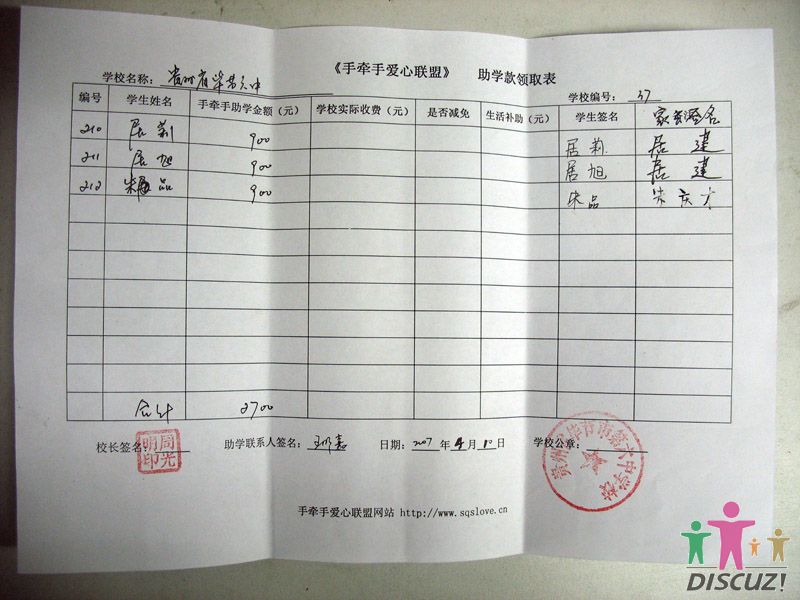 《手牵手爱心联盟》 助学款领取表
学校名称: 贵州省毕节六中
学校编号: 37
编号 学生姓名 手牵手助学金额(元) 学校实际收费(元) 是否减免 生活补助(元) 学生签名 家长签名
210 居莉 900 居莉 居建
211 居旭 900 居旭 居建
212 朱品 900 朱品 朱庆才
合计 2700
校长签名: 周光明印 助学联系人签名: 日期: 2007 年 4 月 10 日 学校公章:
贵州省毕节市第六中学校
手牵手爱心联盟网站 http://www.sqslove.cn
DISCUZ!